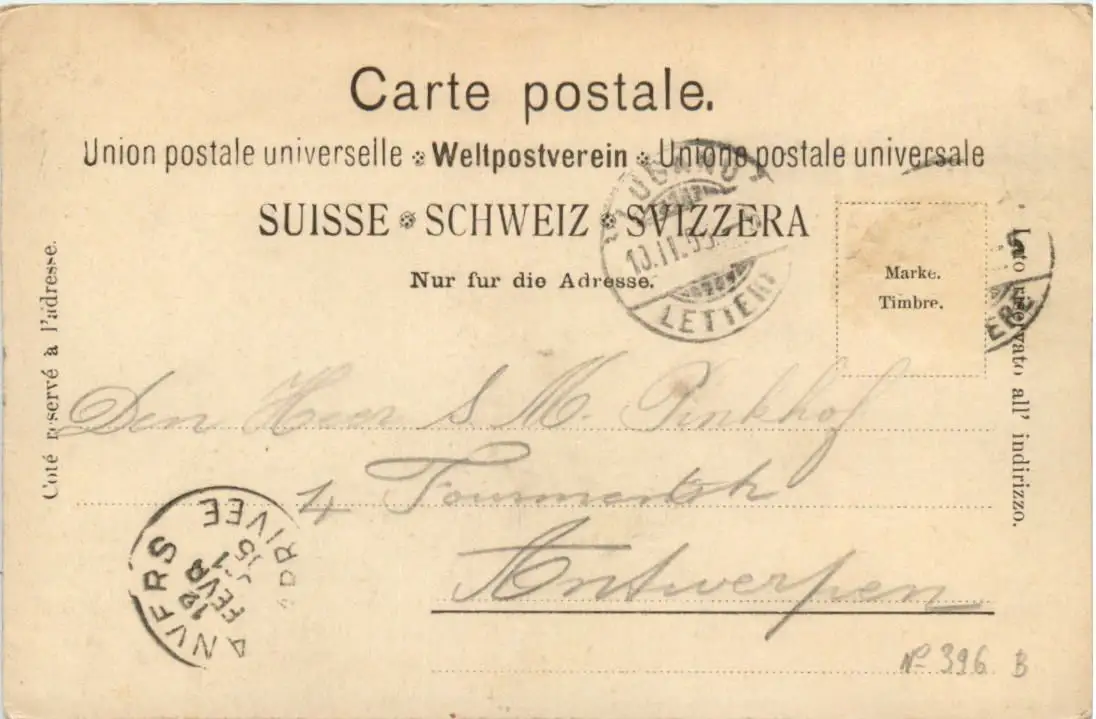 Carte postale.
Union postale universelle Weltpostverein Unione postale universale
SUISSE SCHWEIZ SVIZZERA
Nur fur die Adresse.
Marke.
Timbre.
Coté reservé à l'adresse.
Lato riservato all' indirizzo.
LUGANO
10.II.05.
LETTERE
ERE
Den Heer S. M. Pinkhof
4
Antwerpen
ANVERS
12
FEVR
05
ARRIVEE
Nº 396 B